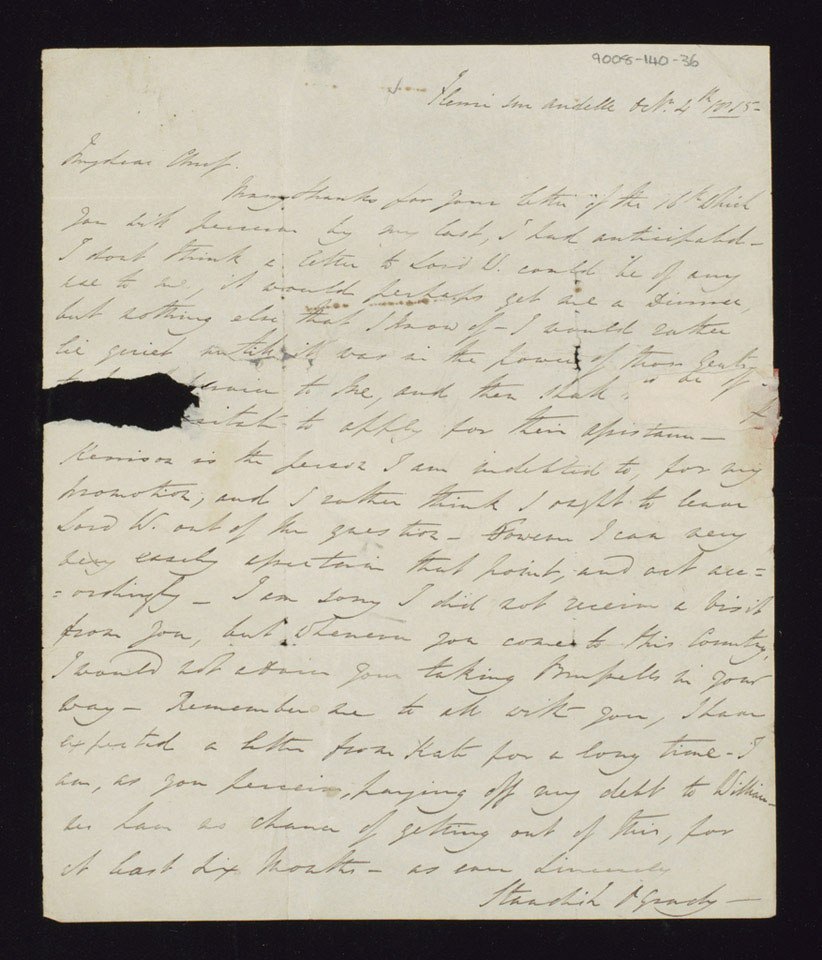 9008-140-36
Fleuri sur andelle Octr. 4th 1815-
My dear Chief.
Many thanks for your letter of the 16th Which
you will perceive by my last, I had anticipated-
I dont think a letter to Lord W. could be of any
use to me, it would perhaps get me a Dinner,
but nothing else that I know of - I would rather
lie quiet until it was in the power of those Gentry
to be of service to me, and then shall
to apply for their assistance -
Kerrison is the person I am indebted to for my
promotion, and I rather think I ought to leave
Lord W. out of the question - However I can very
very easily ascertain that point, and act acc=
=ordingly - I am sorry I did not receive a visit
from you, but Whenever you come to this Country,
I would not advise your taking Brussells in your
way - Remember me to all with you, I have
expected a letter from Kate for a long time - I
am, as you perceive, paying off my debt to William-
We have no chance of getting out of this, for
at least six Months - as ever Sincerely
Standish O'Grady -